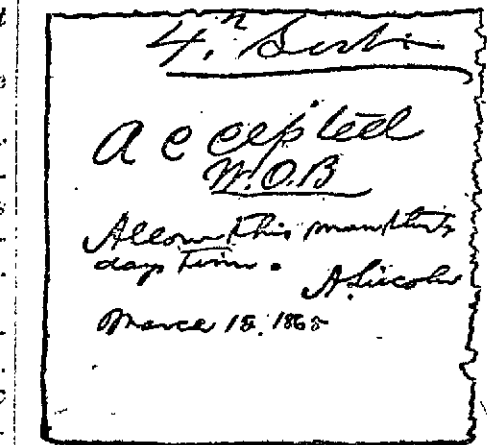 4.th
Accepted
W.O.B
Allow this man thirty
days time.
A. Lincoln
March 15, 1865